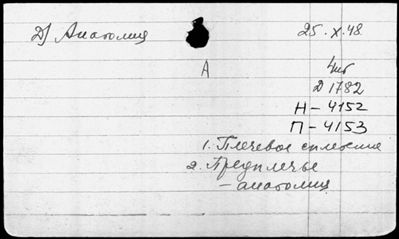 Д) Анатомия 25.X.48
А Чит
Д 1782
Н-4152
П-4153
1. Плечевое сплетение
2. Предплечье
- анатомия